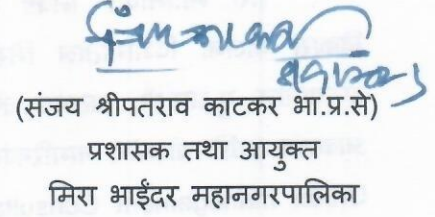 (संजय श्रीपतराव काटकर भा.प्र.से)
प्रशासक तथा आयुक्त
मिरा भाईंदर महानगरपालिका